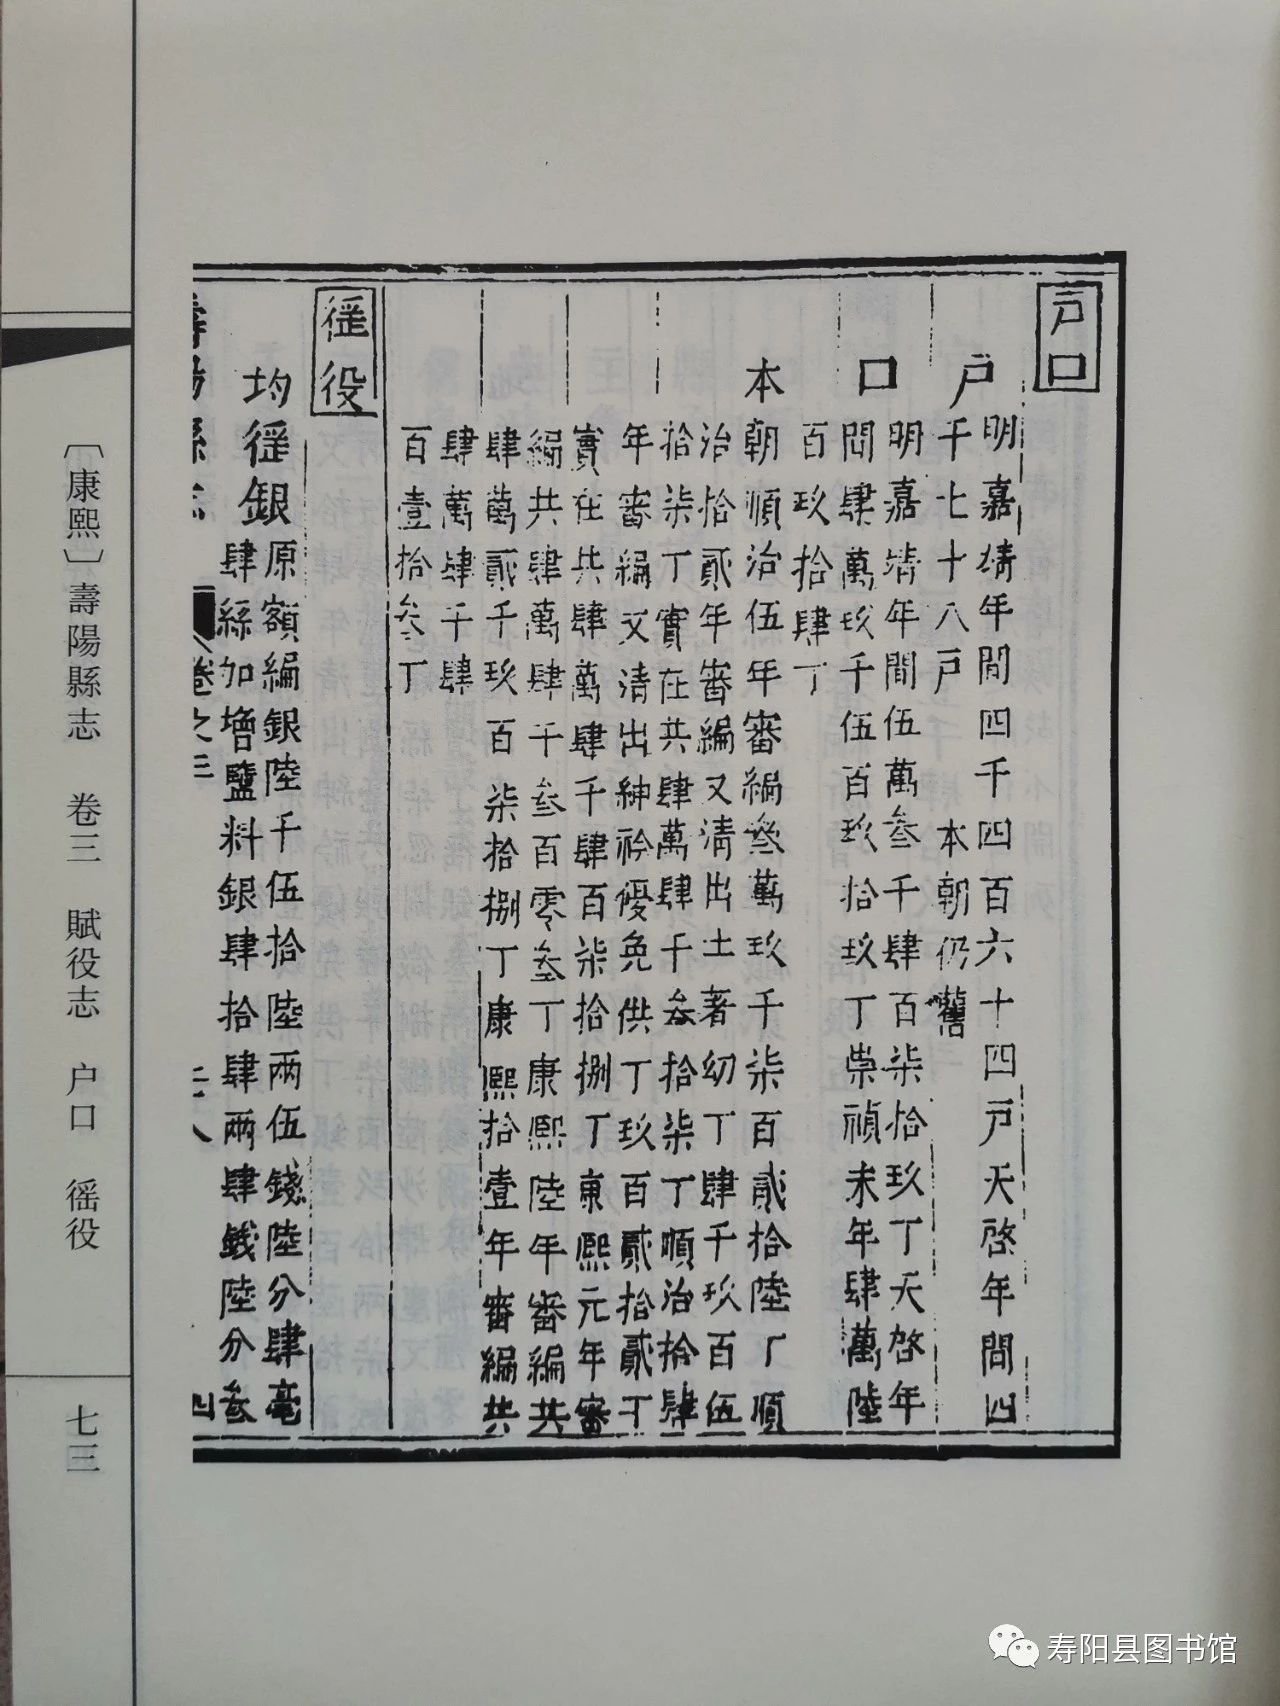 户口
户
明嘉靖年間四千四百六十四戸天啓年間四
千七十八戸 本朝仍舊
口
明嘉靖年間伍萬叁千肆百柒拾玖丁天啓年
間肆萬玖千伍百玖拾玖丁崇禎末年肆萬陸
百玖拾肆丁
本朝順治伍年審編叁萬玖千柒百貳拾陸丁順
治拾貳年審編又清出土著幼丁肆千玖百伍
拾柒丁實在共肆萬肆千叁拾柒丁順治拾肆
年審編又清出紳衿優免供丁玖百貳拾貳丁
實在共肆萬肆千肆百柒拾捌丁康熙元年審
編共肆萬肆千叁百零叁丁康熙陸年審編共
肆萬貳千玖百柒拾捌丁康熙拾壹年審編共
肆萬肆千肆
百壹拾叁丁
徭役
均徭銀
原額編銀陸千伍拾陸兩伍錢陸分肆毫
肆絲加增鹽料銀肆拾肆兩肆錢陸分叁
壽陽縣志 卷之三 四
〔康熙〕壽陽縣志 卷三 賦役志 户口 徭役
七三
寿阳县图书馆